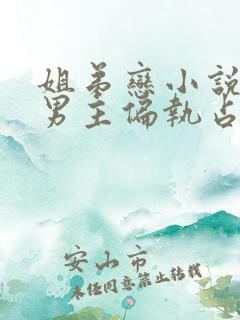 姐弟戀小說
男主偏執占
安山市
未经同意禁止转载